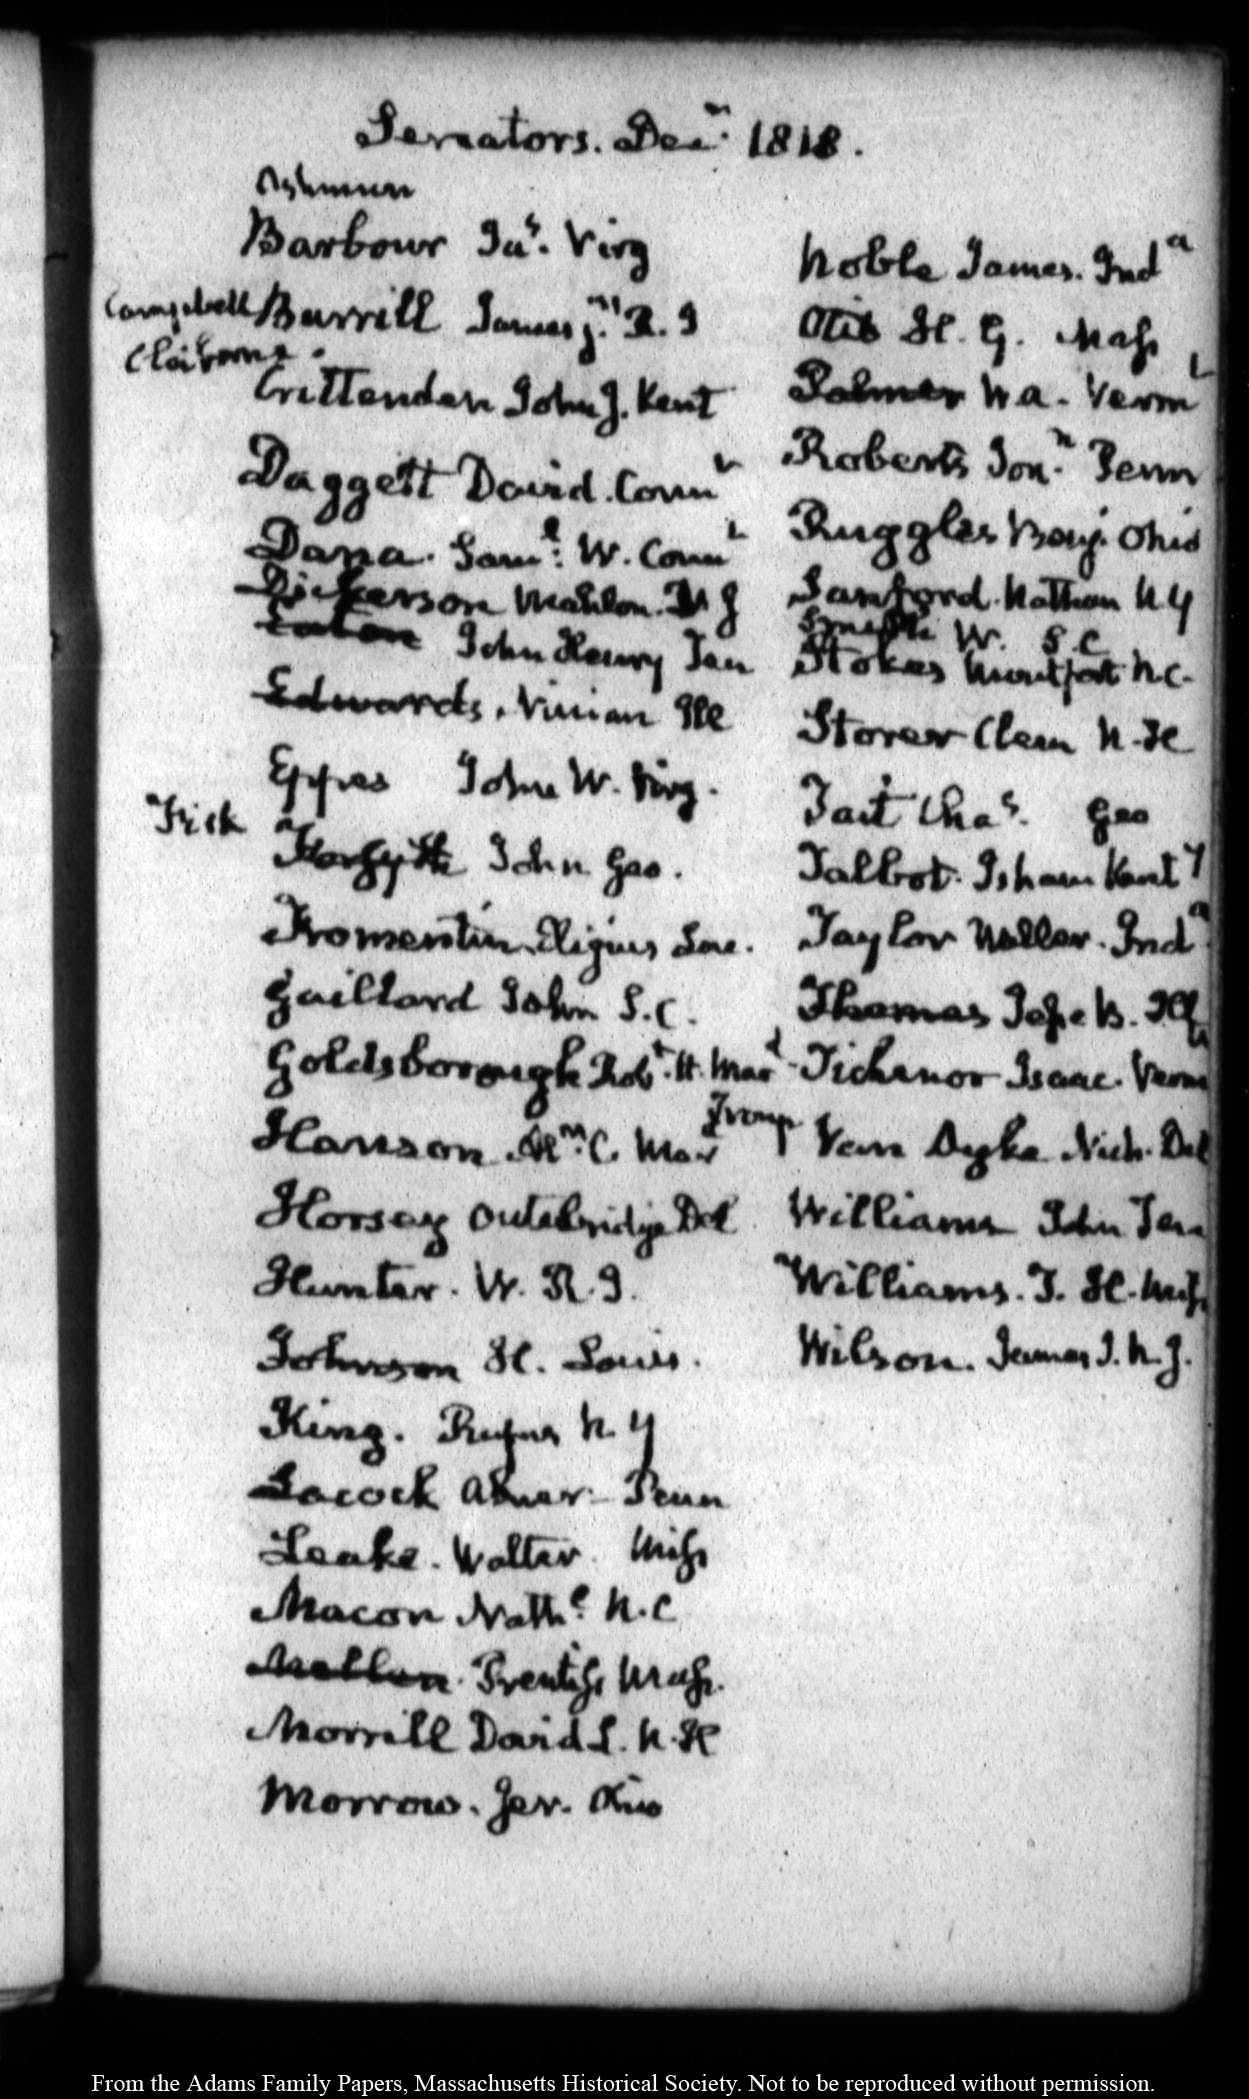 Senators. Decr. 1818.
Ashmun
Barbour Jas. Virg
Campbell Burrill James jr. R. I
Claiborne.
Crittenden John J. Kent
Daggett David. Connt
Dana. Saml: W. Connt
Dickerson Mahlon. N J
Eaton John Henry Ten
Edwards, Ninian Ill
Eppes John W. Virg.
Fisk
Forsyth John Geo.
Fromentin Eligius Lou.
Gaillard John S. C.
Goldsborough Robt. H. Mard
Hanson A. C. Mar
Horsey Outerbridge Del
Hunter. W. R. I.
Johnson H. Louis.
King. Rufus N. Y
Lacock Abner- Penn
Leake. Walter. Miss
Macon Nathl: N. C
Mellen. Prentiss Mass.
Morrill David L. N. H
Morrow. Jer. Ohio
Noble James. Inda
Otis H. G. Mass
Palmer Wa. Vermt
Roberts Jonn. Penn
Ruggles Benj. Ohio
Sanford. Nathan N Y
Smith W. S. C
Stokes Montfort N. C.
Storer Clem N. H
Tait Chas. Geo
Talbot. Isham Kenty
Taylor Waller. Inda.
Thomas Jesse B. Ill
Tichenor Isaac. Vermt
Trimp
Van Dyke Nich. Del
Williams John Ten
Williams. T. H. Miss
Wilson. James J. N. J.
From the Adams Family Papers, Massachusetts Historical Society. Not to be reproduced without permission.